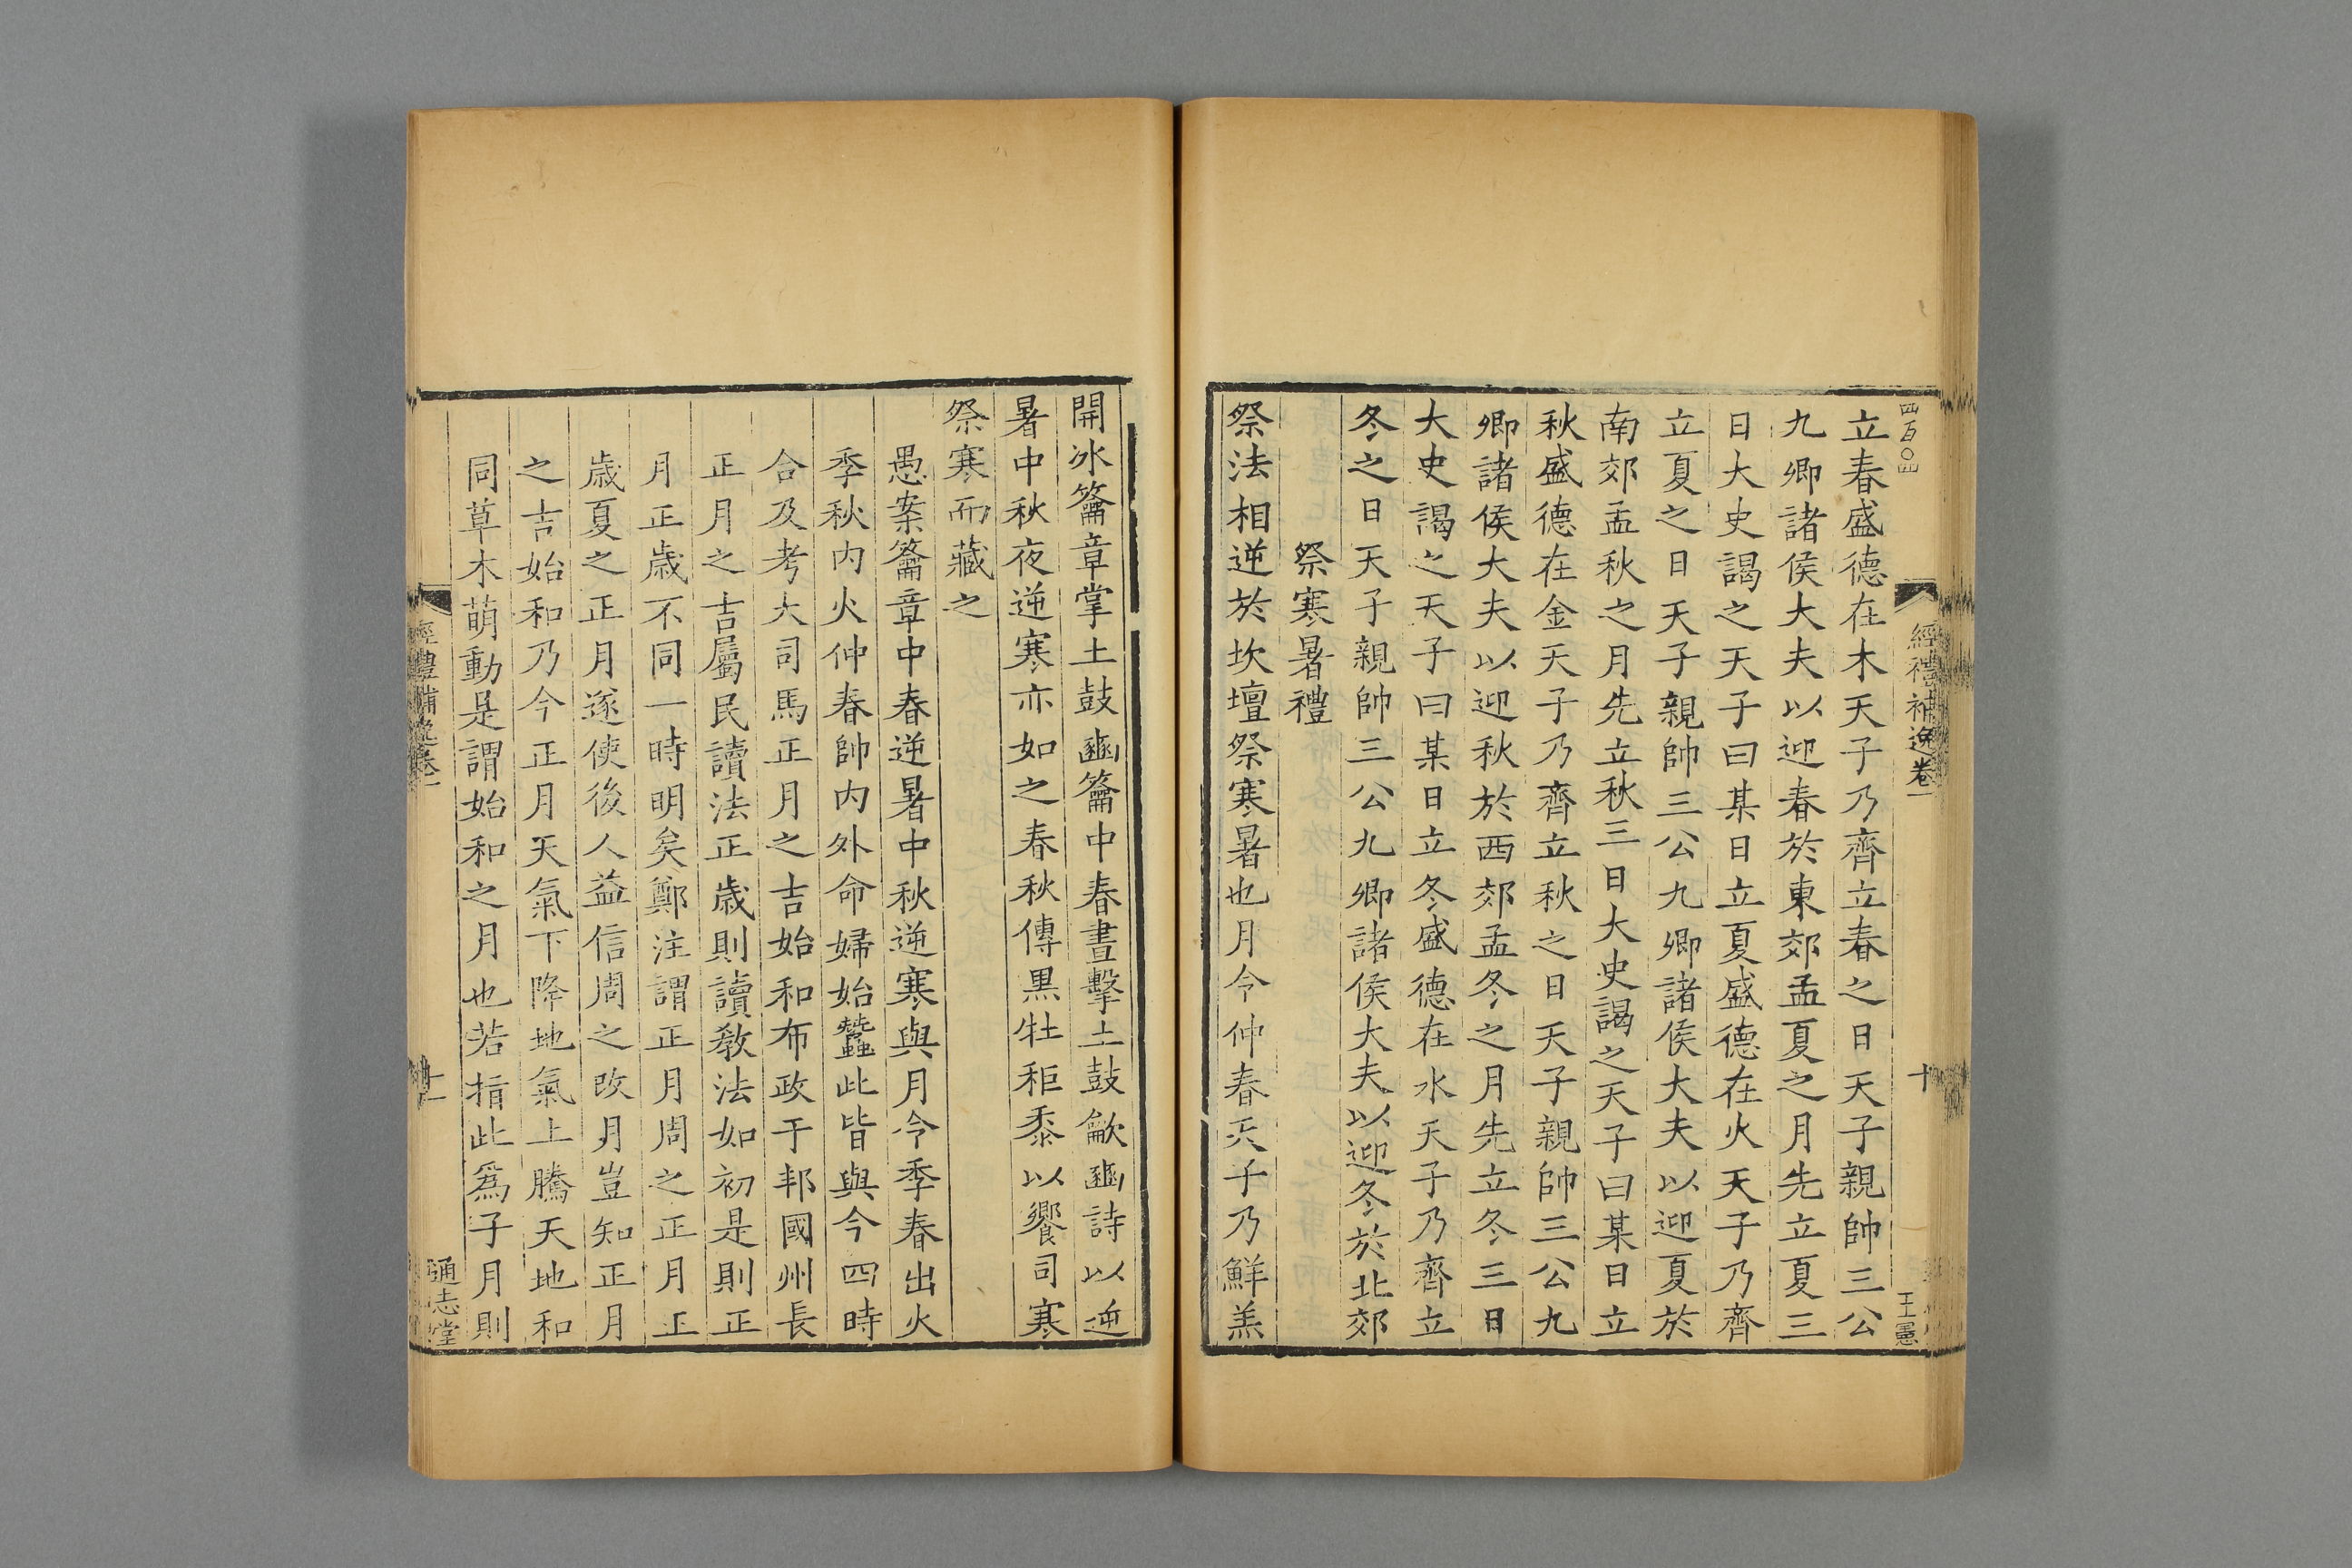 四百〇四
立春盛德在木天子乃齊立春之日天子親帥三公
九卿諸侯大夫以迎春於東郊孟夏之月先立夏三
日大史謁之天子曰某日立夏盛德在火天子乃齊
立夏之日天子親帥三公九卿諸侯大夫以迎夏於
南郊孟秋之月先立秋三日大史謁之天子曰某日立
秋盛德在金天子乃齊立秋之日天子親帥三公九
卿諸侯大夫以迎秋於西郊孟冬之月先立冬三日
大史謁之天子曰某日立冬盛德在水天子乃齊立
冬之日天子親帥三公九卿諸侯大夫以迎冬於北郊
祭寒暑禮
祭法相逆於坎壇祭寒暑也月令仲春天子乃鮮羔
經禮補逸卷一
十
王憲
開冰籥章掌土鼓豳籥中春晝擊土鼓龡豳詩以逆
暑中秋夜逆寒亦如之春秋傳黒牡秬黍以饗司寒
祭寒而藏之
愚案籥章中春逆暑中秋逆寒與月令季春出火
季秋内火仲春帥内外命婦始蠶此皆與今四時
合及考大司馬正月之吉始和布政于邦國州長
正月之吉屬民讀法正歲則讀教法如初是則正
月正歲不同一時明矣鄭注謂正月周之正月正
歲夏之正月遂使後人益信周之改月豈知正月
之吉始和乃今正月天氣下降地氣上騰天地和
同草木萌動是謂始和之月也若指此爲子月則
經禮補逸卷一
十一
通志堂